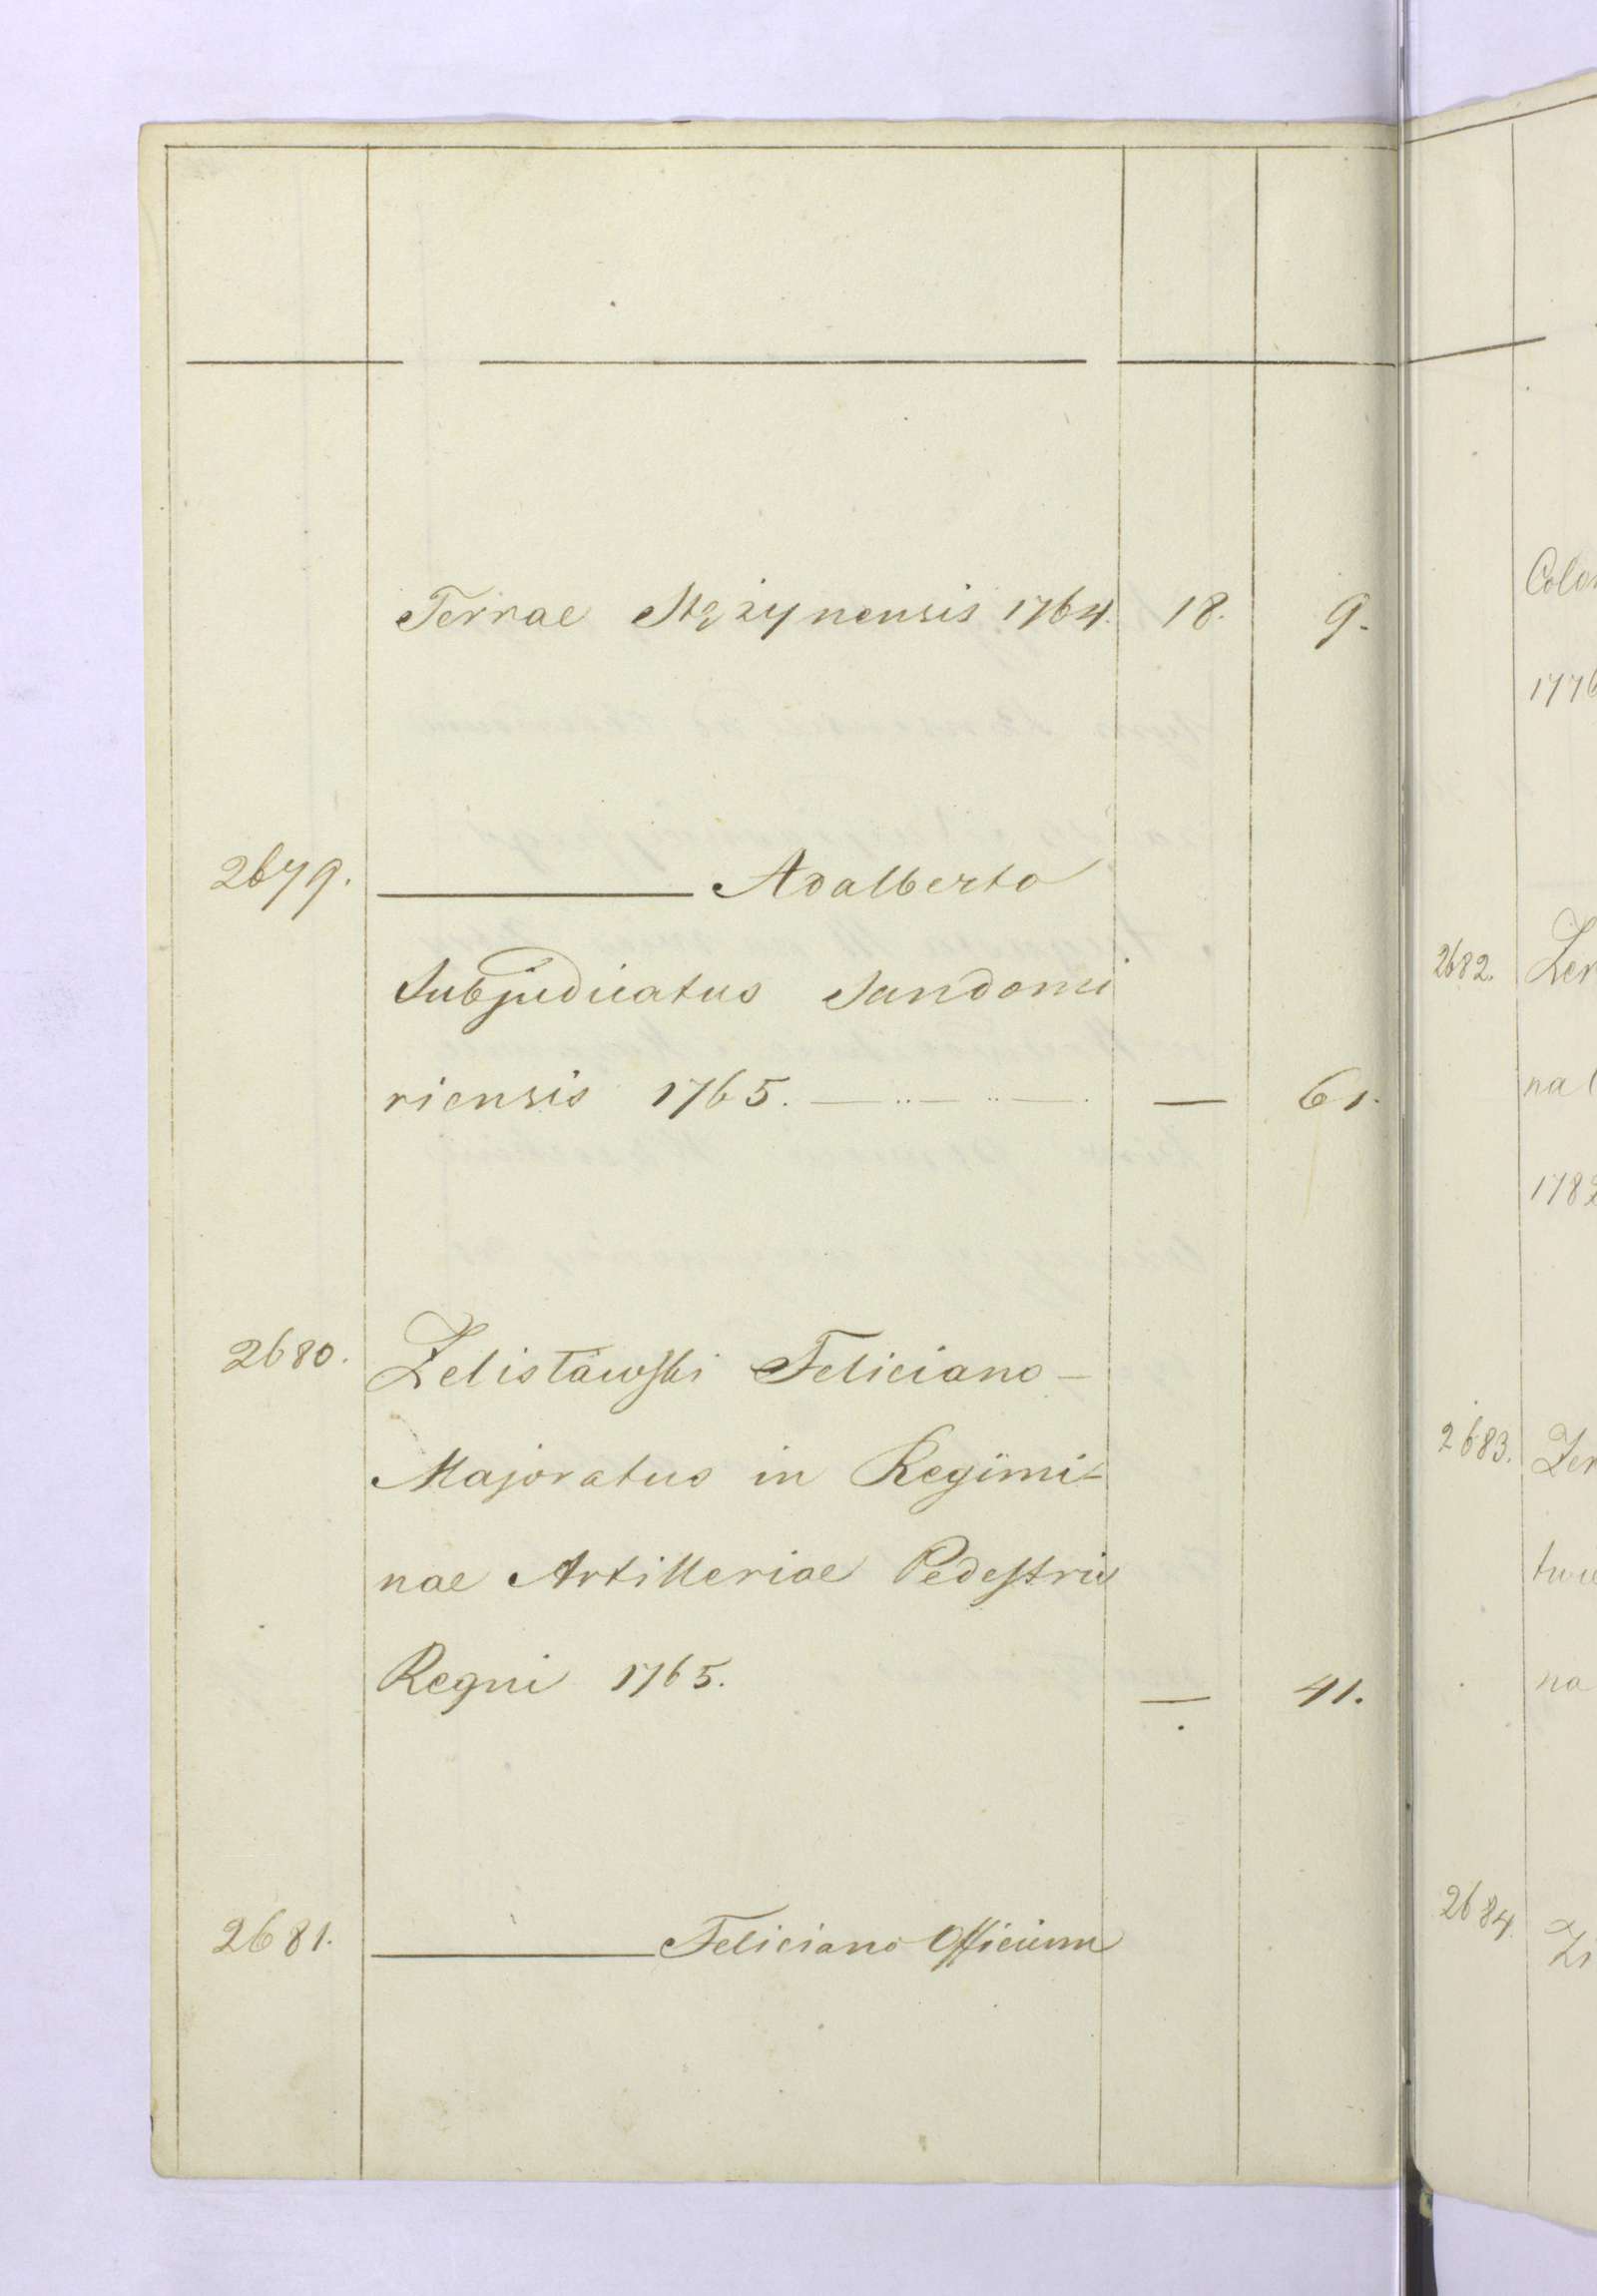 Terrae Stężynensis 1764. 18. 9.
2679. ——— Adalberto
Subjudicatus Sandomi
riensis 1765. — .. — .. — . — 61.
2680. Żelisławski Feliciano —
Majoratus in Regimi-
nae Artilleriae Pedestris
Regni 1765. — 41.
2681. ——— Feliciano Officium
1776
2682. Zer
nal
1782
2683. Zer
na
2684.